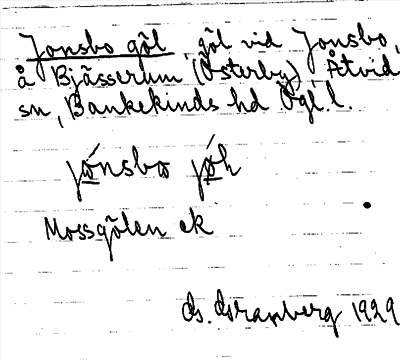 Jonsbo göl, göl vid Jonsbo,
å Bjässerum (Österby), Åtvid
sn, Bankekinds hd Ögl. l.
jónsbo jóh
Mossgölen ek
1929